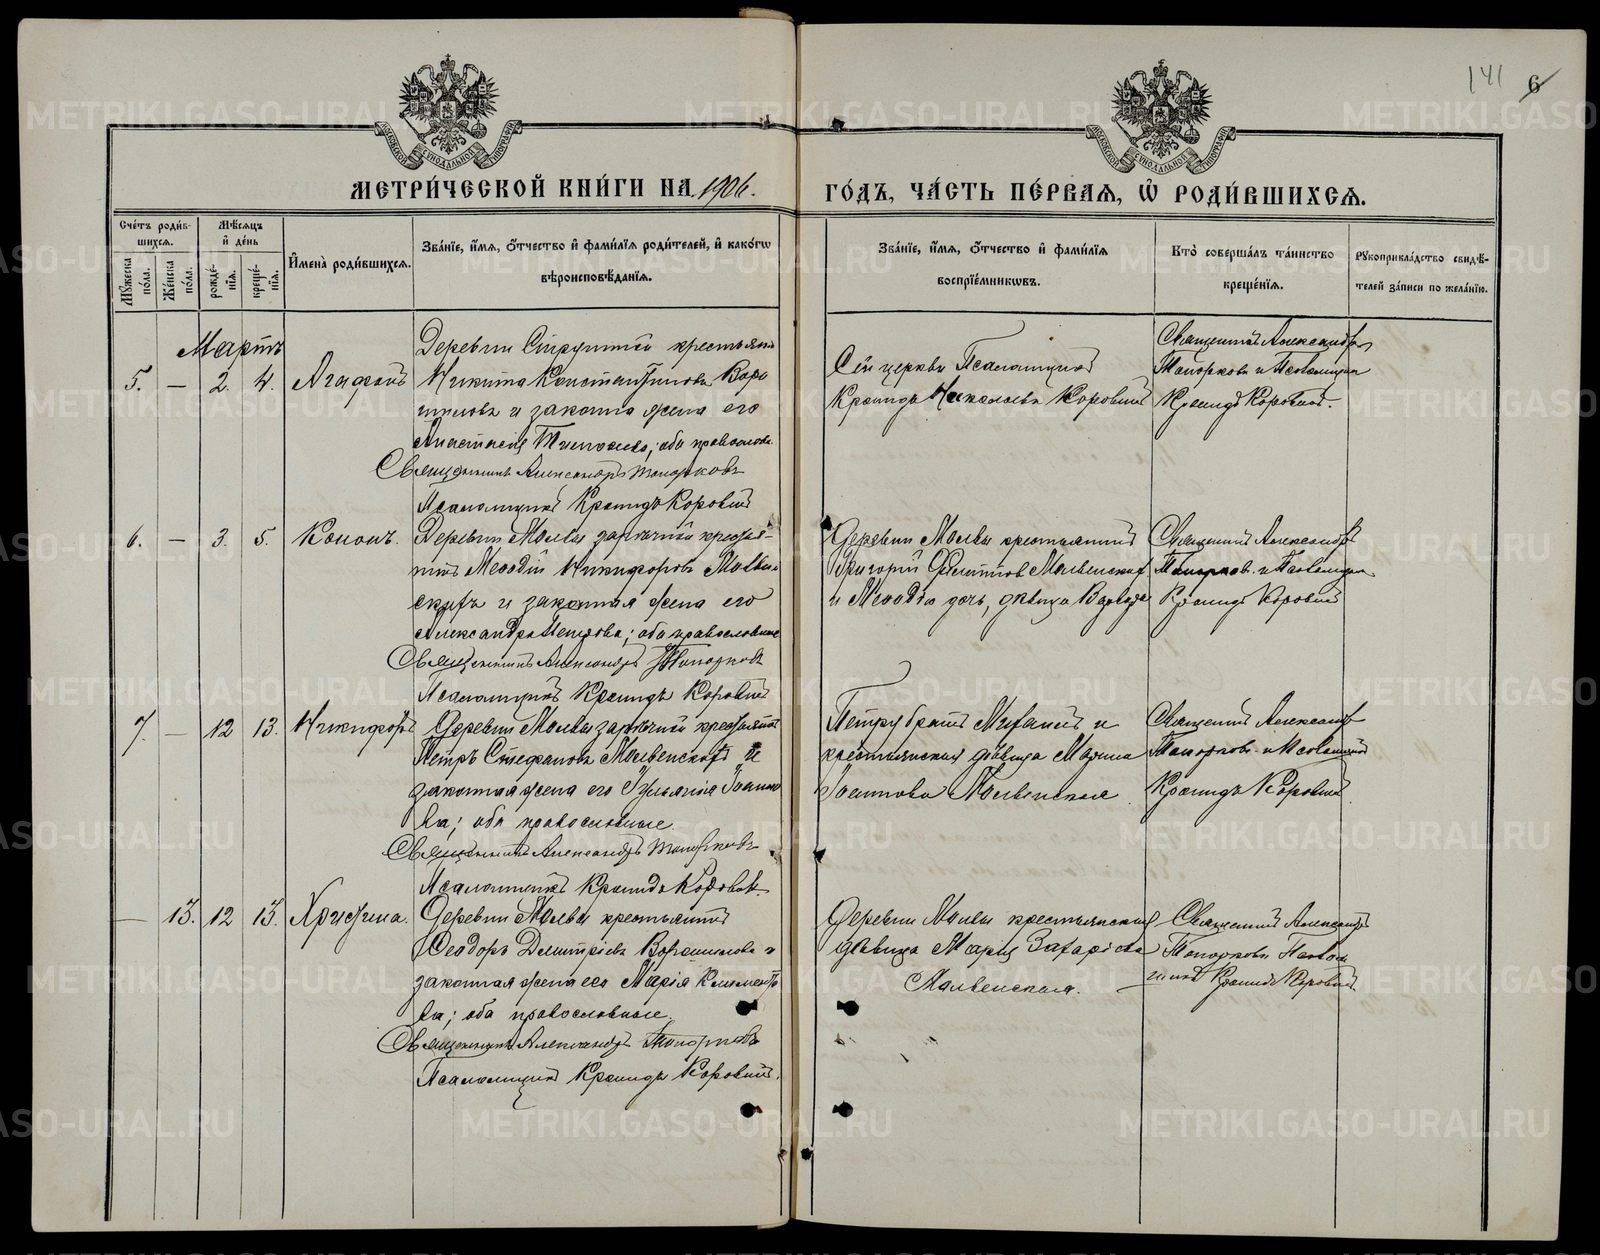 141 6
МЕТРИ́ЧЕСКОЙ КНИ́ГИ НА 1906. ГО́ДЪ, ЧА́СТЬ ПЕ́РВАЯ, Ѡ҆ РОДИ́ВШИХСЯ.
Сче́тъ роди́в-
шихся.
Мꙋ́жеска по́ла.
Же́нска по́ла.
Мѣ́сяцъ
и҆ де́нь
рожде́-
нїѧ.
креще́-
нїѧ.
И҆мена̀ роди́вшихся.
Зва́нїе, и҆́мя, ѻ҆́тчество и҆ фами́лїя роди́телей, и҆ како́гѡ
вѣроисповѣ́данїя.
Зва́нїе, и҆́мя, ѻ҆́тчество и҆ фами́лїя
воспрїе́мникѡвъ.
Кто̀ соверша́лъ та́инство
креще́нїя.
Рꙋкоприкла́дство свидѣ́-
телей за́писи по жела́нїю.
Мартъ
5. — 2. 4. Агафонъ
Деревни крестьян
Никита Константиновъ Воро
шиловъ и законная жена его
Анастасія ; оба православн.
Священникъ Александръ Топорковъ
Псаломщикъ Кронидъ Коровинъ
Сей церкви Псаломщикъ
Кронидъ Николаевъ Коровинъ
Священникъ Александръ
Топорковъ и Псаломщик
Кронидъ Коровинъ.
6. — 3. 5. Кононъ.
Деревни Молвы заречной крестья-
нинъ Меѳодій Никифоровъ Молвен
скихъ и законная жена его
Александра ; оба православные
Священникъ Александръ Топорковъ
Псаломщикъ Кронидъ Коровинъ
Деревни Молвы крестьянинъ
Григорій Филиппов Молвенскихъ
и Меѳодія дочь, девица Варвара
Священникъ Александръ
Топорковъ и Псаломщик
Кронидъ Коровинъ
7. — 12 13. Никифоръ
Деревни Молвы заречной крестьянинъ
Петръ Стефановъ Молвенскихъ и
законная жена его Іульянія Іоанно
ва; оба православные.
Священникъ Александръ Топорковъ
Псаломщикъ Кронидъ Коровинъ
Петру братъ и
крестьянская дѣвица Марина
Іоаннова Молвенская
Священникъ Александръ
Топорковъ и Псаломщикъ
Кронидъ Коровинъ
— 13. 12 13. Христина.
Деревни Молвы крестьянинъ
Ѳеодоръ Димитріевъ Ворошиловъ и
законная жена его Марія Клименто
ва; оба православные.
Священникъ Александръ Топорковъ
Псаломщикъ Кронидъ Коровинъ.
Деревни Молвы крестьянская
дѣвица Марія Захаріева
Молвенская.
Священникъ Александръ
Топорковъ Псалом
щикъ Кронидъ Коровинъ
METRIKI.GASO-URAL.RU